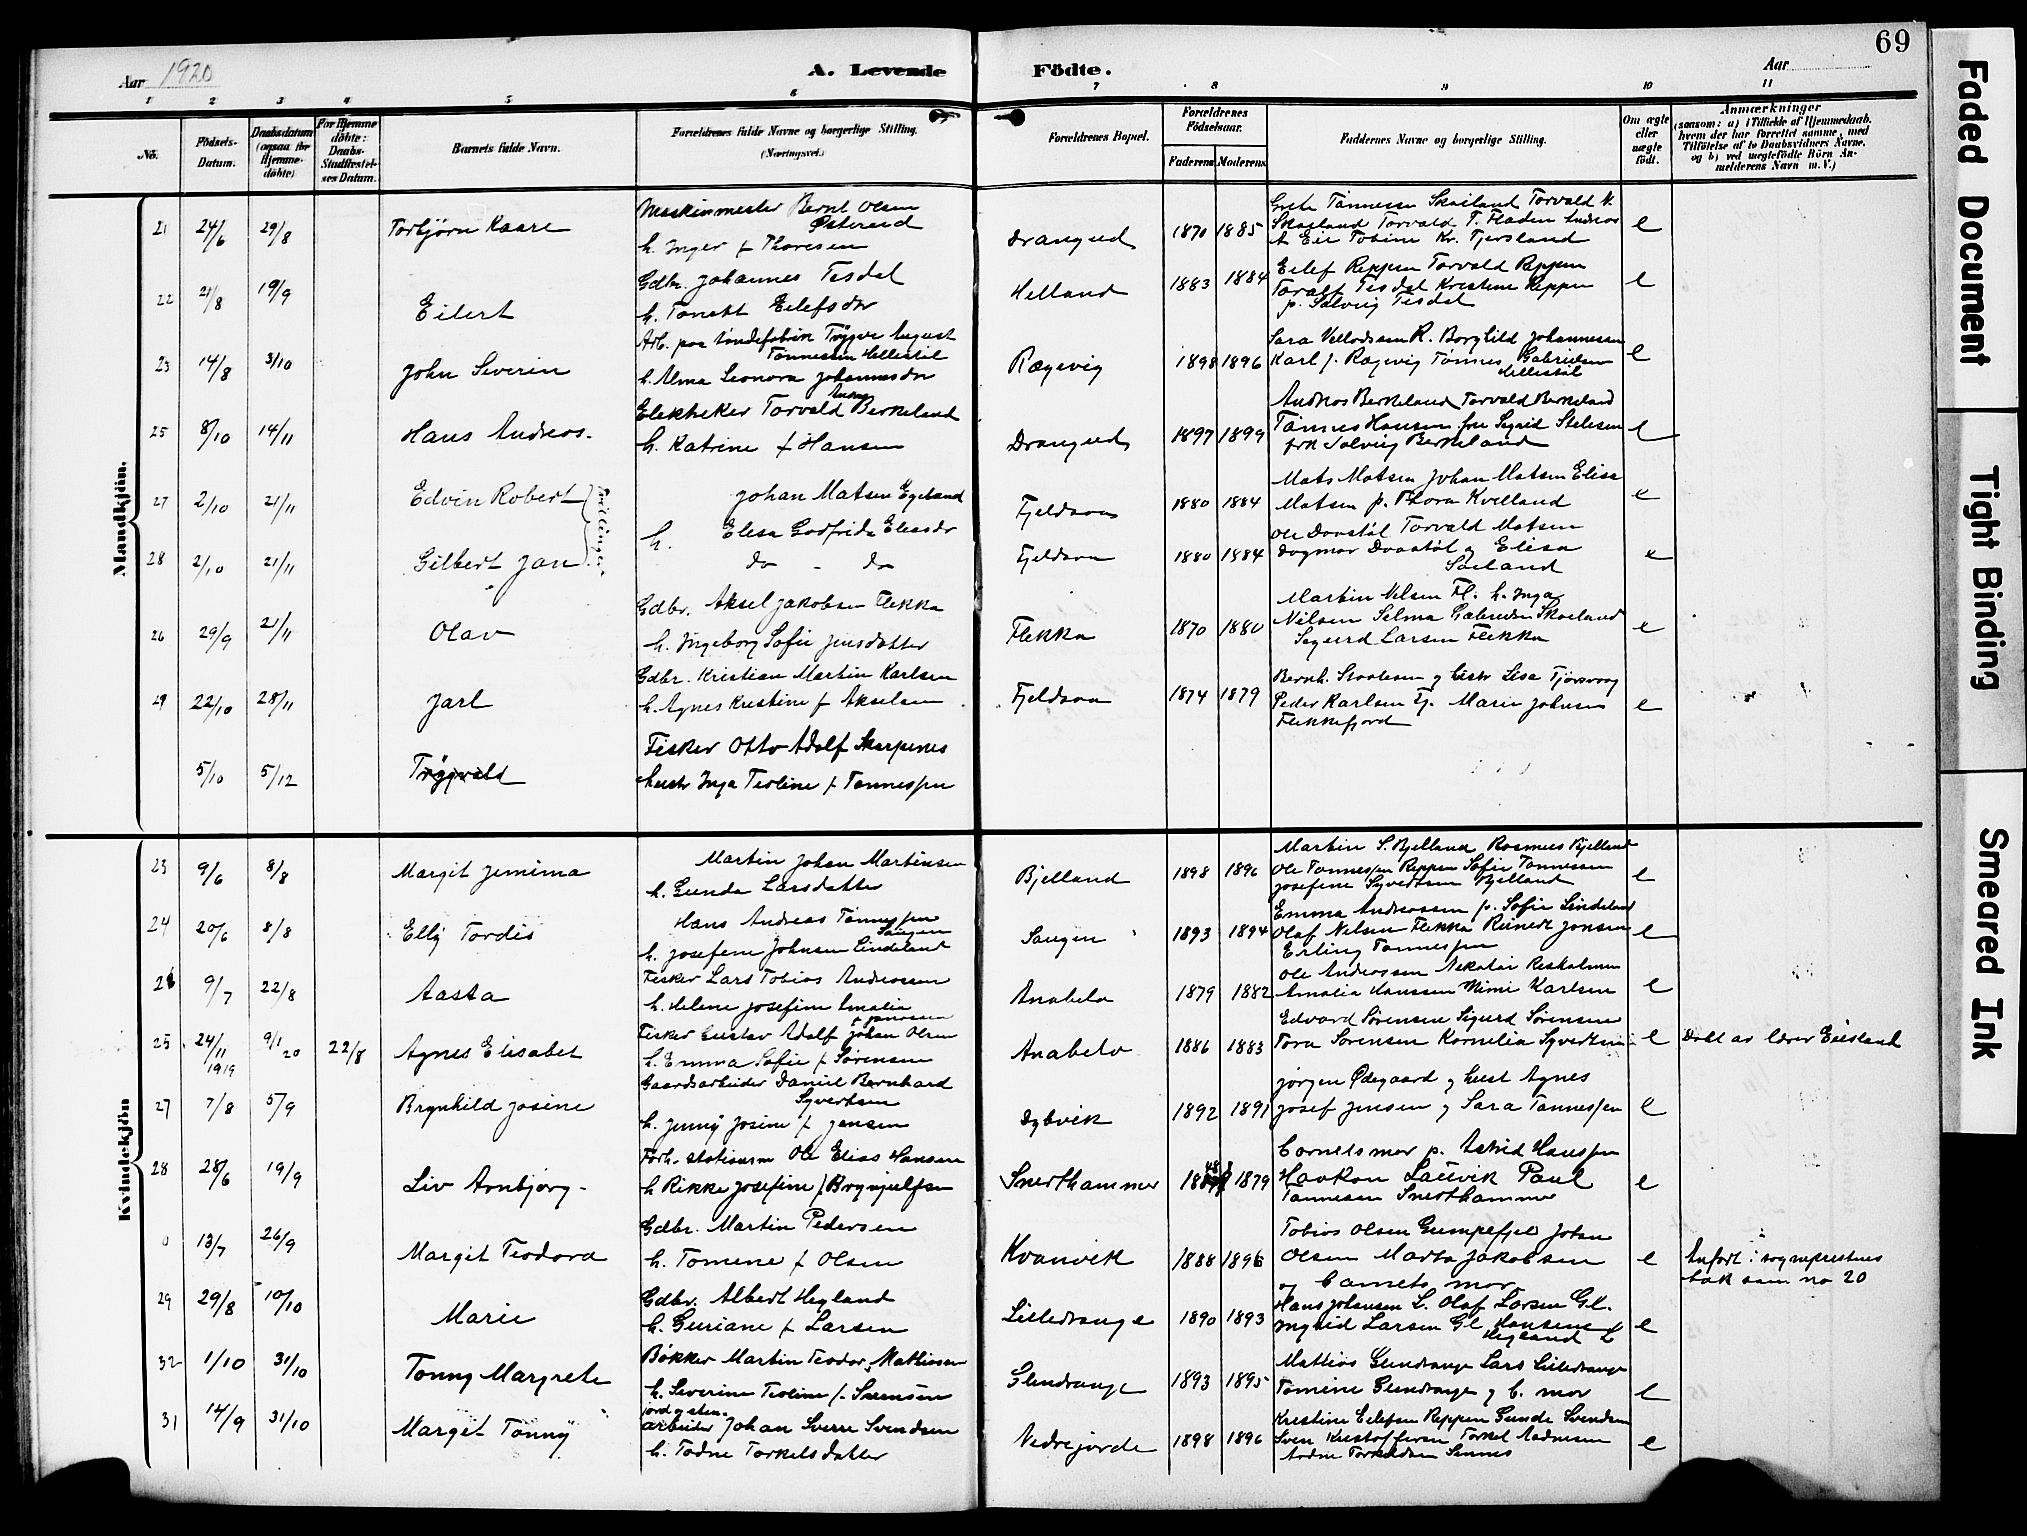 69
Aar 1920
A. Levende Födte.
Aar
1 2 3 4 5 6 7 8 9 10 11
No.
Födsels-Datum.
Daabsdatum (ogsaa for Hjemme-döbte)
For Hjemme döbte: Daabs-Stadfæstel-ses Datum.
Barnets fulde Navn.
Forældrenes fulde Navne og borgerlige Stilling.
(Næringsvei.)
Forældrenes Bopæl.
Forældrenes Födselsaar.
Faderens Moderens
Faddernes Navne og borgerlige Stilling.
Om ægte eller uægte födt.
Anmærkninger
(saasom: a) i Tilfælde af Hjemmedaab,
hvem der har forrettet samme, med
Tilföielse af to Daabsvidners Navne,
og b) ved uægtefödte Börn An-
melderens Navn m. V.)
Mandkjön.
21 24/6 29/8 Torbjörn Kaare
Maskinmester Bernt Olsen
Østerud
h. Inger f Thoresen
Drangeid 1870 1885
Grete Tønnessen Skailand Torvald
Skailand Torvald T. Fladen Andreas
Eie Tobine Kr. Tjersland
e
22 21/8 19/9 Eilert
Gdbr. Johannes Tesdal
h. Tonett Eilefsdr
Helland 1883 1884
Eilef Reppen Torvald Reppen
Toralf Tesdal Kristine Reppen
p. Solveig Tesdal
e
23 14/8 3/10 John Severin
Arb. paa töndefabrik Trÿgve August
Tönnessen Hellestöl
h. Alma Leonora Johannesdr
Rægevig 1898 1896
Sara Vellodssen R. Borghild Johannessen
Karl J. Rægevig Tönnes Gabrielsen
Hellestöl
e
25 8/10 14/11 Hans Andreas.
Elektriker Torvald Andreas Berkeland
h. Katrine f Hansen
Drangeid 1897 1899
Andreas Berkeland Torvald Berkeland
Tønnes Hansen fru Sigrid Stelesen
frk Solveig Berkeland
e
27 2/10 21/11 Edvin Robert
tvillinger
Johan Matsen Egeland
h. Elisa Godfrida Eliasdr
Fjeldsaa 1880 1884
Mats Matsen Johan Matsen Elisa
Matsen p. Thora Kvelland
e
28 2/10 21/11 Gilbert Jan
do - do
Fjeldsaa 1880 1884
Ole Dravstøl Torvald Matsen
Dagmar Dravstøl og Elisa
Soeland
e
26 29/9 21/11 Olav
Gdbr. Aksel Jakobsen Flikka
h. Ingeborg Sofie Jensdatter
Flikka 1870 1880
Martin Nilsen Fl. h. Inga
Nilsen Selma Gabrielsen Skoeland
Sigurd Larsen Flikka
e
29 22/10 28/11 Jarl
Gdbr. Kristian Martin Karlsen
h. Agnes Kristine f Akselsen
Fjeldsaa 1874 1879
Bernh. Staalesen og hustr Lisa Tjørsvaag
Peder Karlsen Fj. Marie Johnsen
Flekkefjord
e
5/10 5/12 Trÿgvald
Fisker Otto Adolf Skarpenes
hustr Inga Teoline f Tønnessen
Kvindekjön
23 9/6 8/8 Margit Jemima
Martin Johan Martinsen
h. Gunda Larsdatter
Bjelland 1898 1896
Martin S. Bjelland Rasmus Bjelland
Ole Tønnessen Reppen Sofie Tønnessen
Josefine Syvertsen Bjelland
e
24 20/6 8/8 Ellÿ Tordis
Hans Andreas Tønnessen
Saugen
h. Josefine Johnsen Lindeland
Saugen 1893 1894
Emma Andreassen p. Sofie Lindeland
Olaf Nilsen Flikka Reinert Jonsen
Erling Tønnessen
e
26 9/7 22/8 Aasta
Fisker Lars Tobias Andreassen
h. Helene Josefine Amalia
Anabelø 1879 1882
Ole Andreassen Nekolai Reskolmen
Amalia Hanssen Mimi Karlsen
e
25 24/11 1919 9/1 20 22/8 Agnes Elisabet
Fisker Gustav Adolf Johan Olsen
h. Emma Sofie f Sørensen
Anabelø 1886 1883
Edvard Sørensen Sigurd Sørensen
Tora Sørensen Kornelia Syvertsen
e
Døbt av lærer Eiesland
27 7/8 5/9 Brynhild Josine
Gaardsarbeider Daniel Bernhard
Syvertsen
h. Jennÿ Josine f Jensen
Dybvik 1892 1891
Jørgen Ødegaard og hust Agnes
Josef Jensen og Sara Tønnessen
e
28 28/6 19/9 Liv Arnbjørg.
Forh. stationsm Ole Elias Hansen
h Rikke Josefine f Brynjulfsen
Snerthammer 1879
Barnets mor p. Astrid Hanssen
Haakon Lauvik Paul
Tønnesen Snerthammer
e
13/7 26/9 Margit Teodora
Gdbr. Martin Pedersen
h. Tomine f Olsen
Kvanvik 1888 1896
Tobias Olsen Gumpefjel Johan
Olsen Marta Jakobsen
og barnets mor
e
Anført i sogneprestens
bok som no 20
29 29/8 10/10 Marie
Gdbr. Albert Hegland
h. Guriane f Larsen
Lilledrange 1890 1893
Hans Johansen L. Olaf Larsen Gl.
Ingrid Larsen Gl Hansine
Hegland L
e
32 1/10 31/10 Tonny Margrete
Bøkker Martin Teodor Mathiassen
h. Severine Teoline f. Sørensen
Glendrange 1893 1895
Mathias Glendrange Lars Lilledrange
Tomine Glendrange og b. mor
e
31 14/9 31/10 Margit Tonnÿ
jord og sten-
arbeider Johan Sverre Svendsen
h. Todne Torkelsdatter
Nedrejorde 1898 1896
Kristine Eilefsen Reppen Gunda Svendsen
Sven Kristoffersen Torkel Aadnesen
Aadne Torkeldsen Sinnes
e
Faded Document
Tight Binding
Smeared Ink